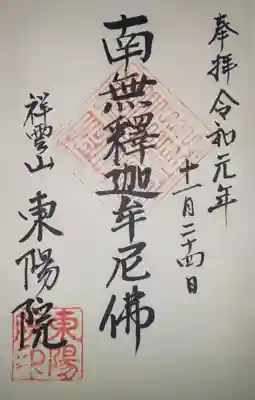 奉拝 令和元年
十一月二十四日
南無釋迦牟尼佛
祥雲山 東陽院